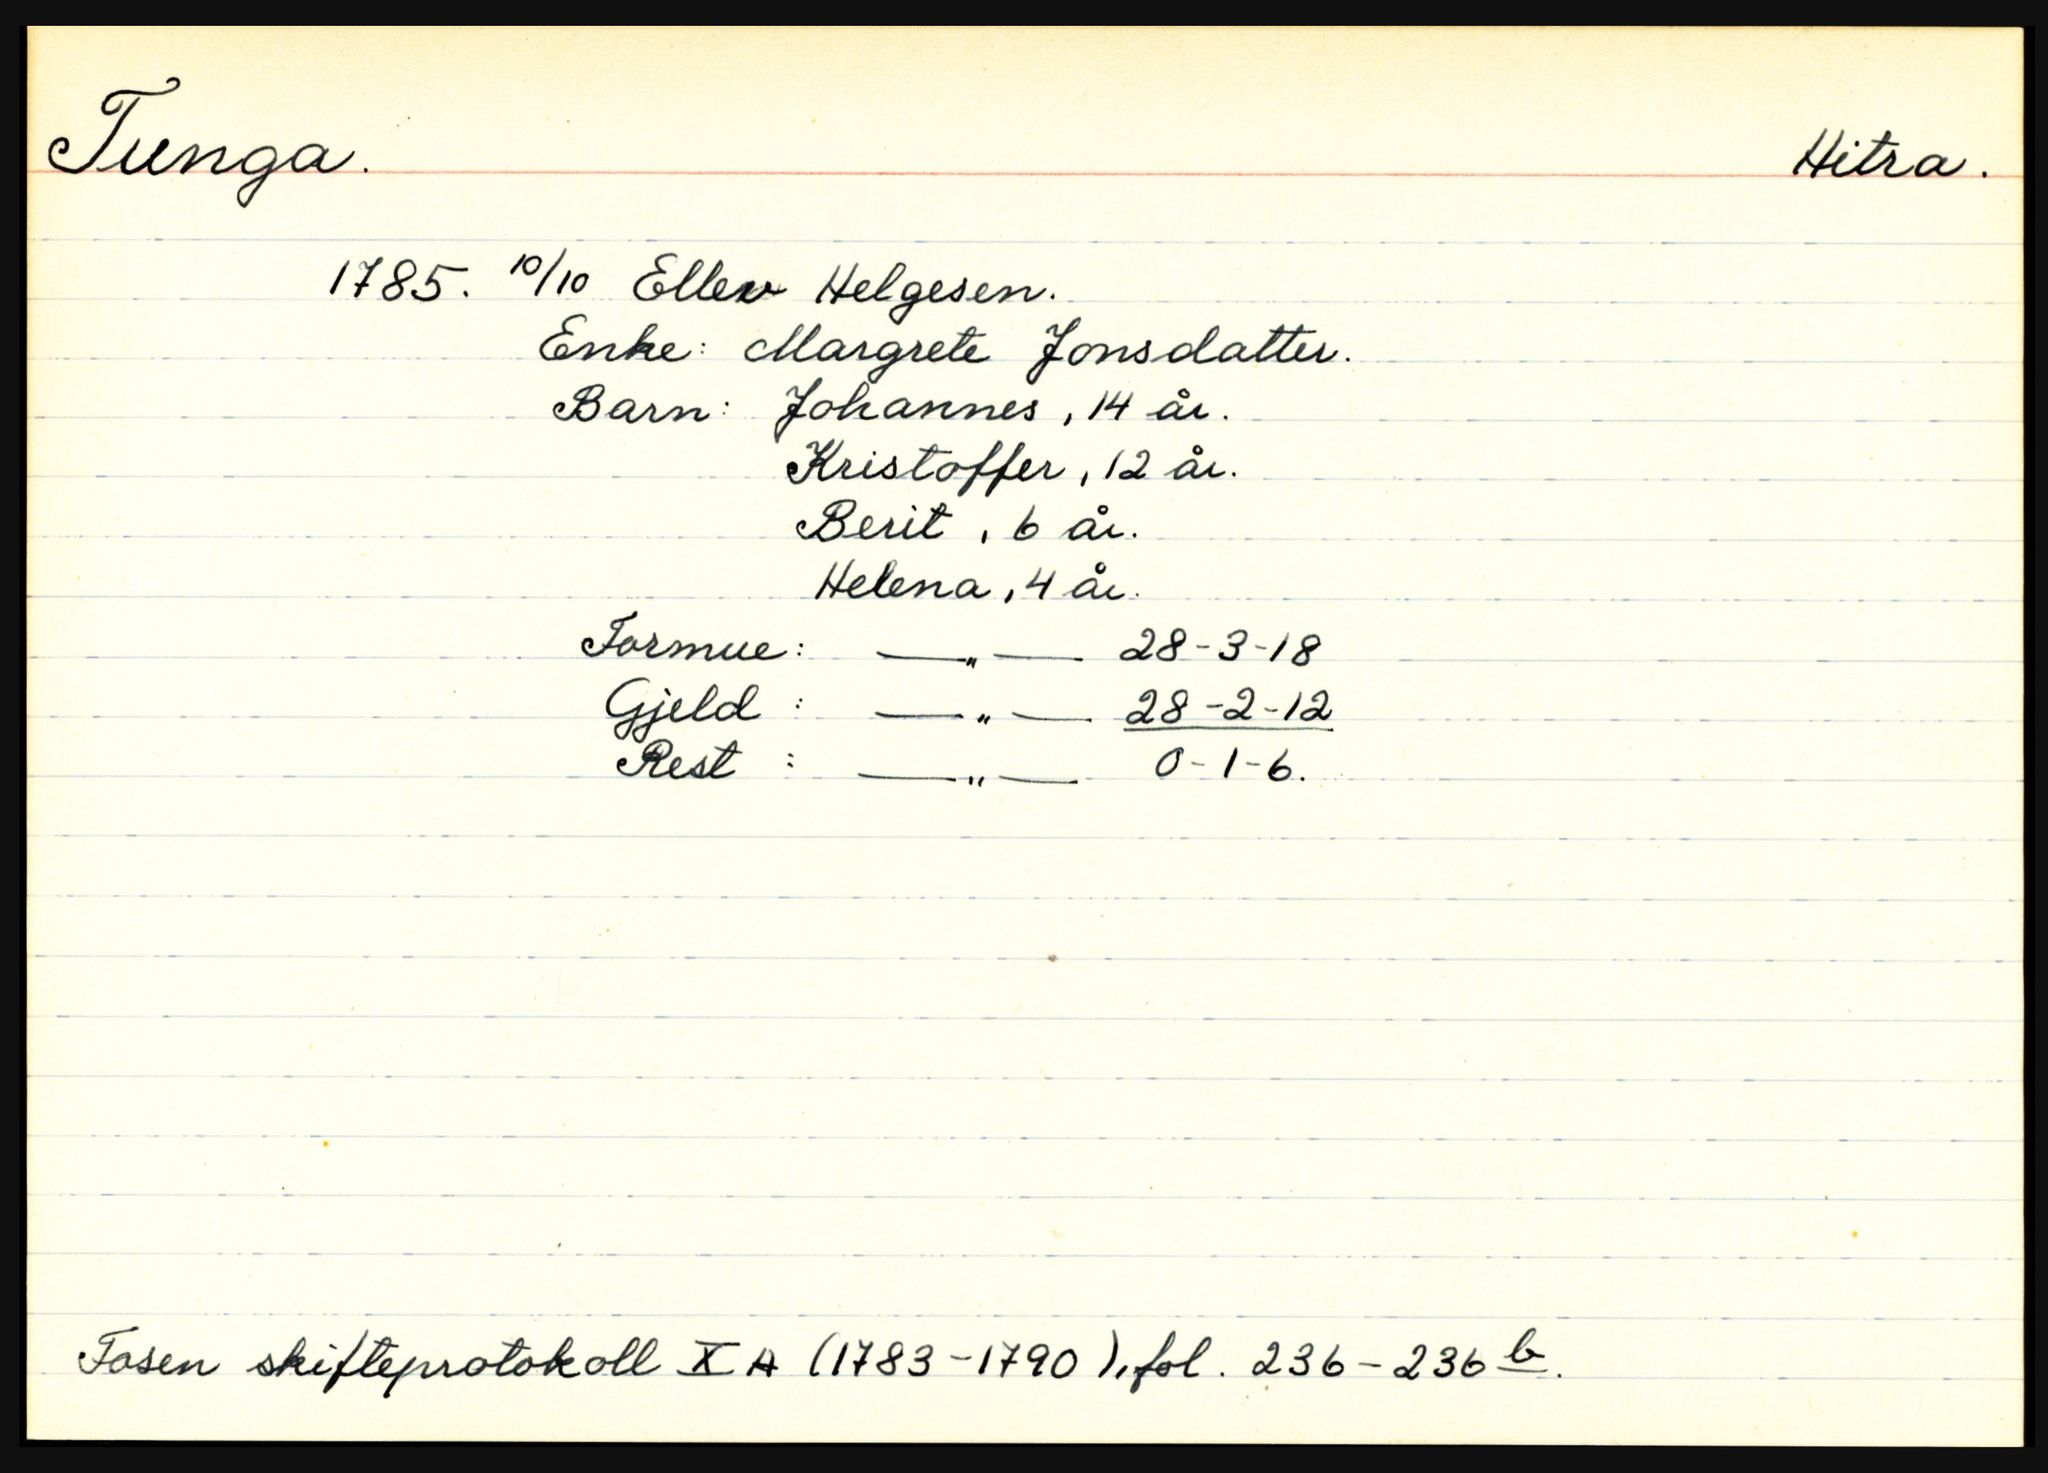 Tunga. Hitra.
1785. 10/10 Ellev Helgesen.
Enke: Margrete Jonsdatter.
Barn: Johannes, 14 år.
Kristoffer, 12 år.
Berit, 6 år.
Helena, 4 år.
Formue: —„— 28-3-18
Gjeld: —„— 28-2-12
Rest: —„— 0-1-6.
Fosen skifteprotokoll X A (1783-1790), fol. 236-236 b.